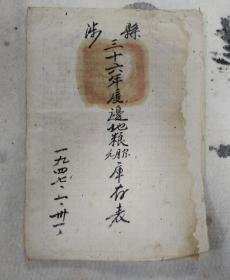 涉縣
三十六年度邊地粮元月份庫存表
一九四七、一、卅一、